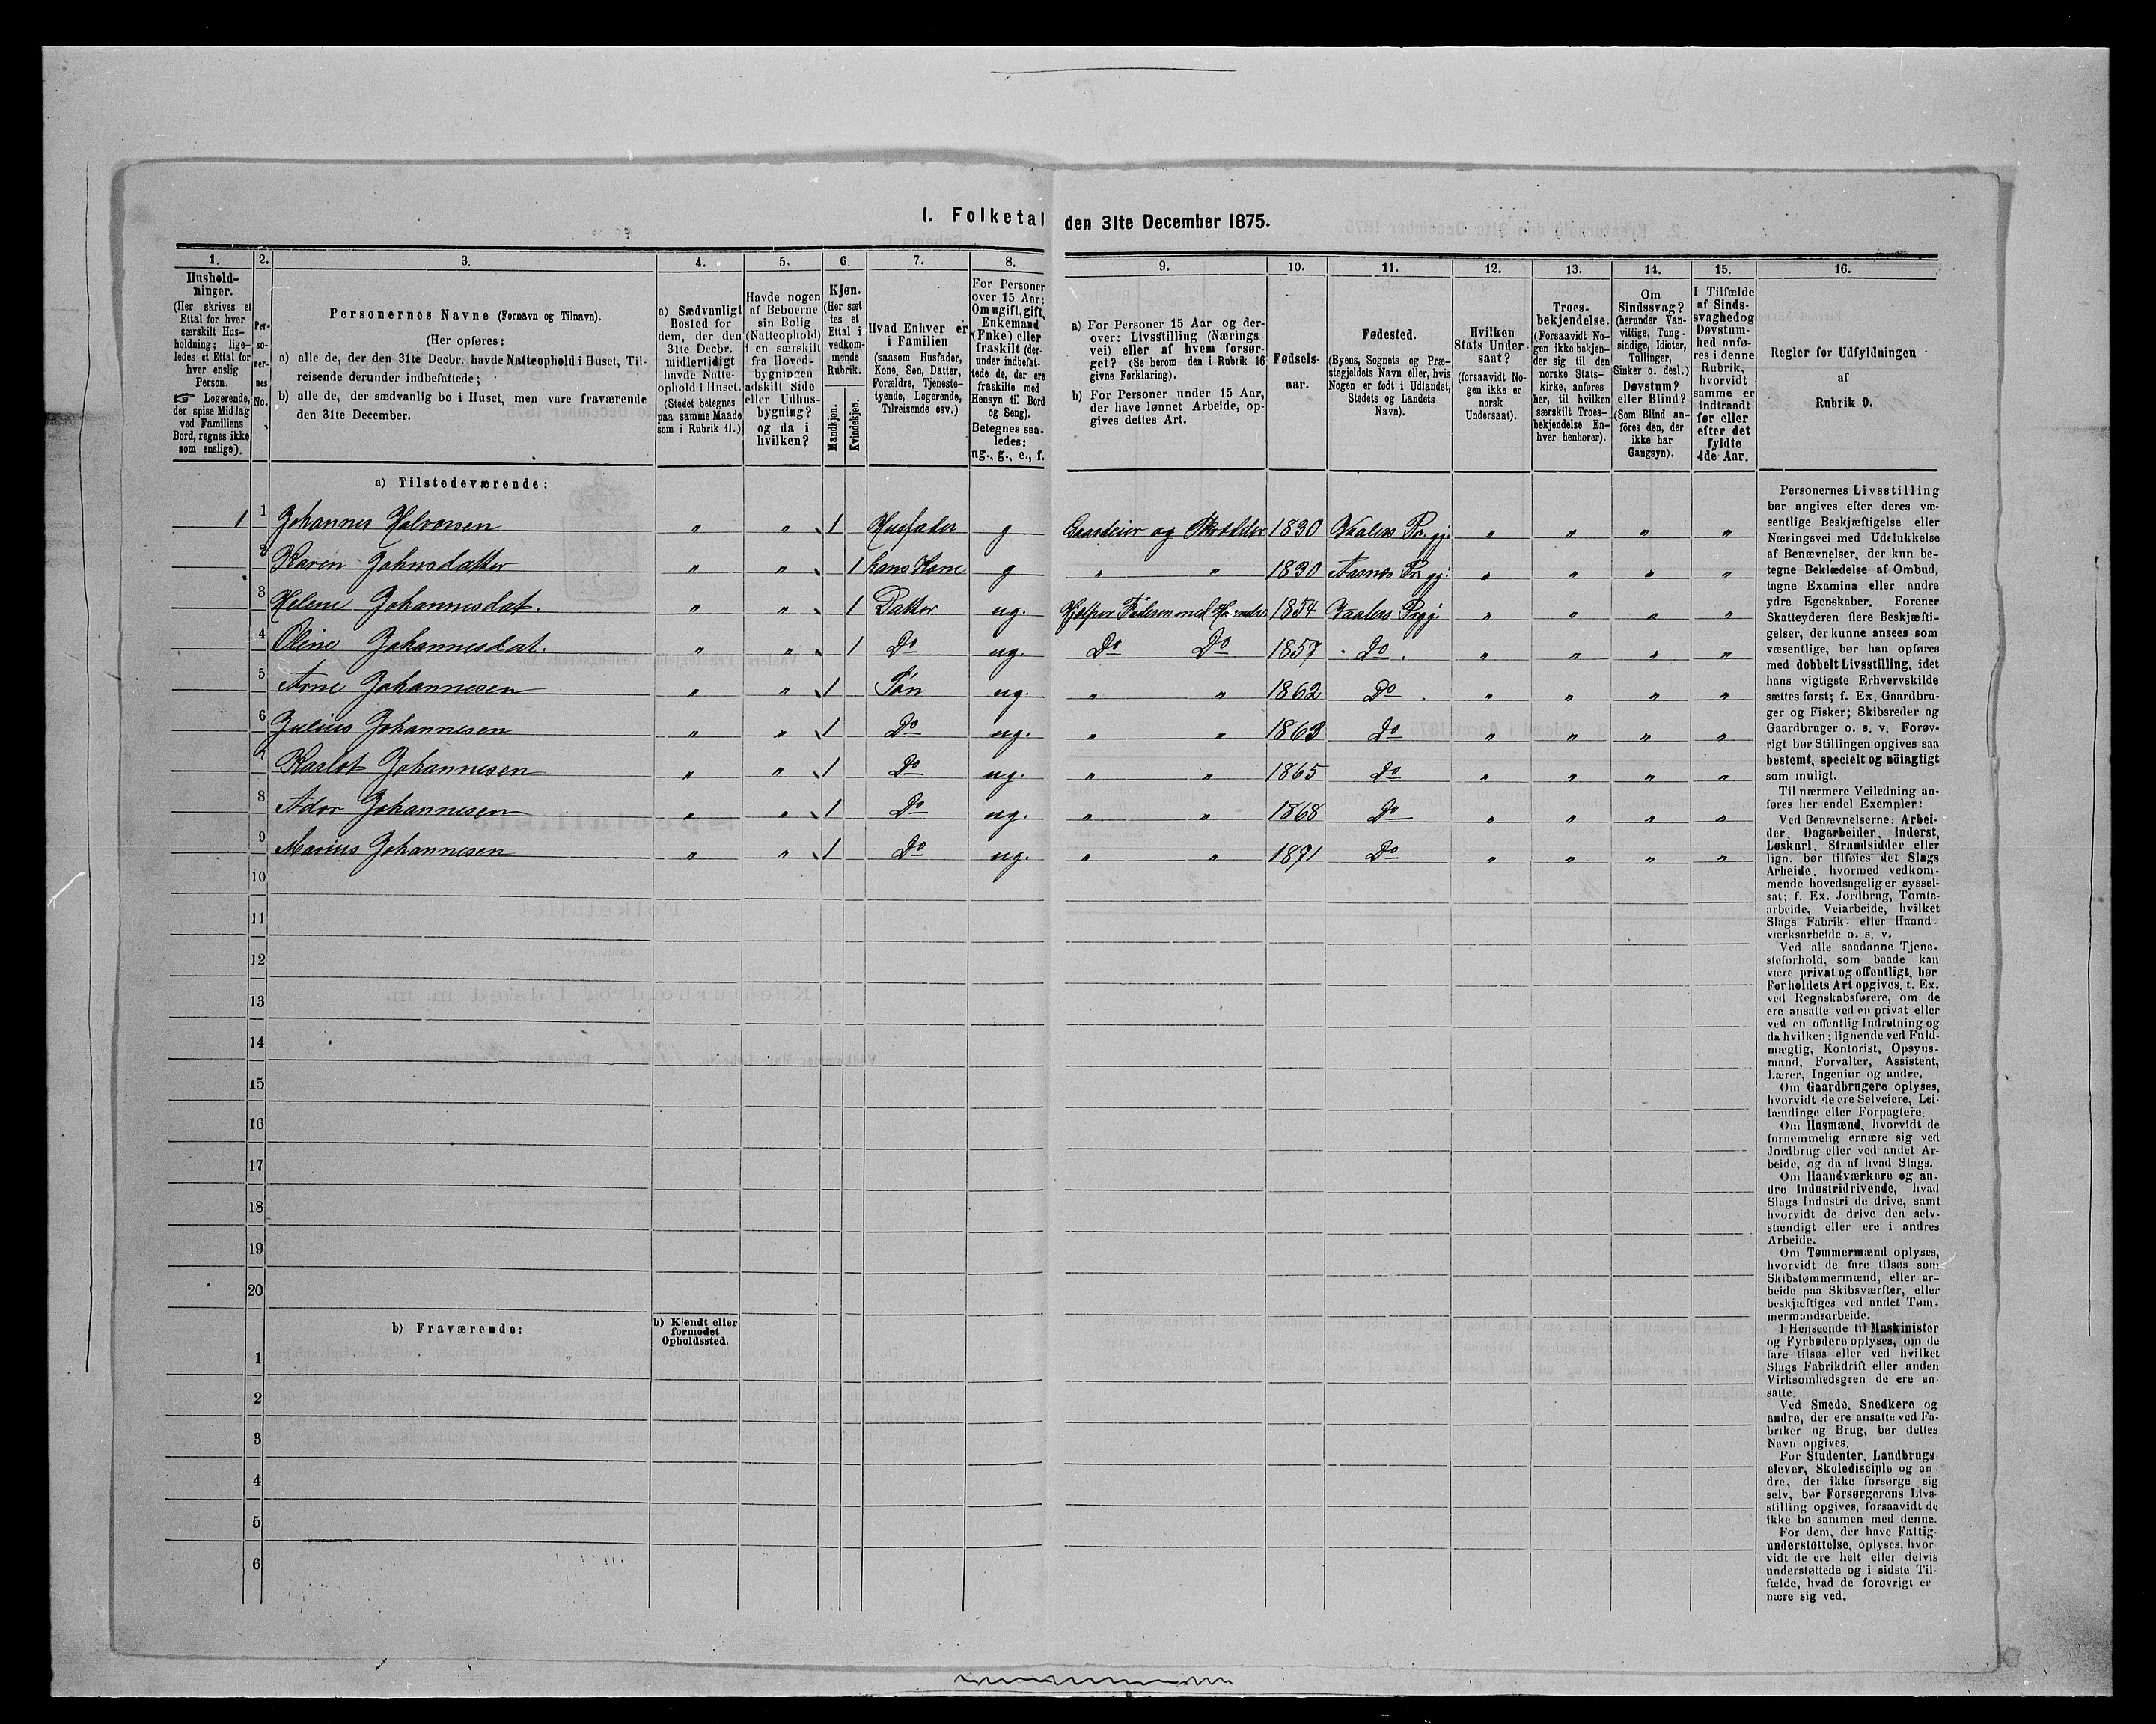 I. Folketal den 31te December 1875.
1. 2. 3. 4. 5. 6. 7. 8. 9. 10. 11. 12. 13. 14. 15. 16.
Hushold-
ninger.
(Her skrives et
Ettal for hver
særskilt Hus-
holdning; lige-
ledes et Ettal for
hver enslig
Person.
☞ Logerende,
der spise Middag
ved Familiens
Bord, regnes ikke
som enslige).
Per-
so-
ner-
nes
No.
Personernes Navne (Fornavn og Tilnavn).
(Her opføres:
a) alle de, der den 31te Decbr. havde Natteophold i Huset, Til-
reisende derunder indbefattede;
b) alle de, der sædvanlig bo i Huset, men vare fraværende
den 31te December.
a) Sædvanligt
Bosted for
dem, der den
31te Decbr.
midlertidigt
havde Natte-
ophold i Huset.
(Stedet betegnes
paa samme Maade
som i Rubrik 11.)
Havde nogen
af Beboerne
sin Bolig
(Natteophold)
i en særskilt
fra Hoved-
bygningen
adskilt Side
eller Udhus-
bygning?
og da i
hvilken?
Kjøn.
(Her sæt
tes et
Ettal i
vedkom-
mende
Rubrik.
Mandkjøn.
Kvindekjøn.
Hvad Enhver er
i Familien
(saasom Husfader,
Kone, Søn, Datter,
Forældre, Tjeneste-
tyende, Logerende,
Tilreisende osv.)
For Personer
over 15 Aar:
Om ugift, gift,
Enkemand
(Enke) eller
fraskilt (der-
under indbefat-
tede de, der ere
fraskilte med
Hensyn til Bord
og Seng).
Betegnes saa-
ledes:
ug., g., e., f.
a) For Personer 15 Aar og der-
over: Livsstilling (Nærings
vei) eller af hvem forsør-
get? (Se herom den i Rubrik 16
givne Forklaring).
b) For Personer under 15 Aar,
der have lønnet Arbeide, op-
gives dettes Art.
Fødsels-
aar.
Fødested.
(Byens, Sognets og Præ-
stegjeldets Navn eller, hvis
Nogen er født i Udlandet,
Stedets og Landets
Navn).
Hvilken
Stats Under
saat?
(forsaavidt No-
gen ikke er
norsk
Undersaat).
Troes-
bekjendelse.
(Forsaavidt No-
gen ikke bekjen-
der sig til den
norske Stats-
kirke, anføres
her, til hvilken
særskilt Troes-
bekjendelse En-
hver henhører).
Om
Sindssvag?
(herunder Van-
vittige, Tung-
sindige, Idioter,
Tullinger,
Sinker o. desl.)
Døvstum?
eller Blind?
(Som Blind an-
føres den, der
ikke har
Gangsyn).
I Tilfælde
af Sinds-
svaghed og
Døvstum-
hed anfø-
res i denne
Rubrik,
hvorvidt
samme er
indtraadt
før eller
efter det
fyldte
4de Aar.
Regler for Udfyldningen
af
Rubrik 9.
a) Tilstedeværende:
1 1 Johannes Halvorsen " " 1 Husfader g Gaardeier og Skrædder 1830 Vaalers Pr. gj. " " " "
2 Karen Johnsdatter " " 1 hans Kone g " " 1830 Aasnes Pr gj. " " " "
3 Helene Johannesdat. " " 1 Datter ug. Hjelper Faderen med 1854 Vaalers Prgj. " " " "
4 Oline Johannesdat. " " 1 Do ug. Do Do 1857 Do " " " "
5 Arne Johannesen " " 1 Søn ug. " " 1862 Do " " " "
6 Julius Johannesen " " 1 Do ug. " " 1863 Do " " " "
7 Karlot Johannesen " " 1 Do ug. " " 1865 Do " " " "
8 Ador Johannesen " " 1 Do ug. " " 1868 Do " " " "
9 Marius Johannesen " " 1 Do ug. " " 1871 Do " " " "
10
11
12
13
14
15
16
17
18
19
20
b) Fraværende:
b) Kjendt eller
formodet
Opholdssted.
1
2
3
4
5
6
Personernes Livsstilling
bør angives efter deres væ-
sentlige Beskjæftigelse eller
Næringsvei med Udelukkelse
af Benævnelser, der kun be-
tegne Beklædelse af Ombud,
tagne Examina eller andre
ydre Egenskaber. Forener
Skatteyderen flere Beskjæfti-
gelser, der kunne ansees som
væsentlige, bør han opføres
med dobbelt Livsstilling, idet
hans vigtigste Erhvervskilde
sættes først; f. Ex. Gaardbru-
ger og Fisker; Skibsreder og
Gaardbruger o. s. v. Forøv-
rigt bør Stillingen opgives saa
bestemt, specielt og nøiagtigt
som muligt.
Til nærmere Veiledning an-
føres her endel Exempler:
Ved Benævnelserne: Arbei-
der, Dagarbeider, Inderst,
Løskarl, Strandsidder eller
lign. bør tilføies det Slags
Arbeide, hvormed vedkom-
mende hovedsagelig er syssel-
sat; f. Ex. Jordbrug, Tomte-
arbeide, Veiarbeide, hvilket
Slags Fabrik- eller Haand-
værksarbeide o. s. v.
Ved alle saadanne Tjene-
steforhold, som baade kan
være privat og offentligt, bør
Forholdets Art opgives, t. Ex.
ved Regnskabsførere, om de
ere ansatte ved en privat eller
ved en offentlig Indretning og
da hvilken; lignende ved Fuld-
mægtig, Kontorist, Opsyns-
mand, Forvalter, Assistent,
Lærer, Ingeniør og andre.
Om Gaardbrugere oplyses,
hvorvidt de ere Selveiere, Lei-
lændinge eller Forpagtere.
Om Husmænd, hvorvidt de
fornemmelig ernære sig ved
Jordbrug eller ved andet Ar-
beide, og da af hvad Slags.
Om Haandværkere og an-
dre Industridrivende, hvad
Slags Industri de drive, samt
hvorvidt de drive den selv-
stændigt eller ere i andres
Arbeide.
Om Tømmermænd oplyses,
hvorvidt de fare tilsøs som
Skibstømmermænd, eller ar-
beide paa Skibsværfter, eller
beskjæftiges ved andet Tøm-
mermandsarbeide.
I Henseende til Maskinister
og Fyrbødere oplyses, om de
fare tilsøs eller ved hvilket
Slags Fabrikdrift eller anden
Virksomhedsgren de ere an-
satte.
Ved Smede, Snedkere og
andre, der ere ansatte ved Fa-
briker og Brug, bør dettes
Navn opgives.
For Studenter, Landbrugs-
elever, Skoledisciple og an-
dre, der ikke forsørge sig
selv, bør Forsørgerens Livs-
stilling opgives, forsaavidt de
ikke bo sammen med denne.
For dem, der have Fattig-
understøttelse, oplyses, hvor
vidt de ere helt eller delvis
understøttede og i sidste Til-
fælde, hvad de forøvrigt er
nære sig ved.